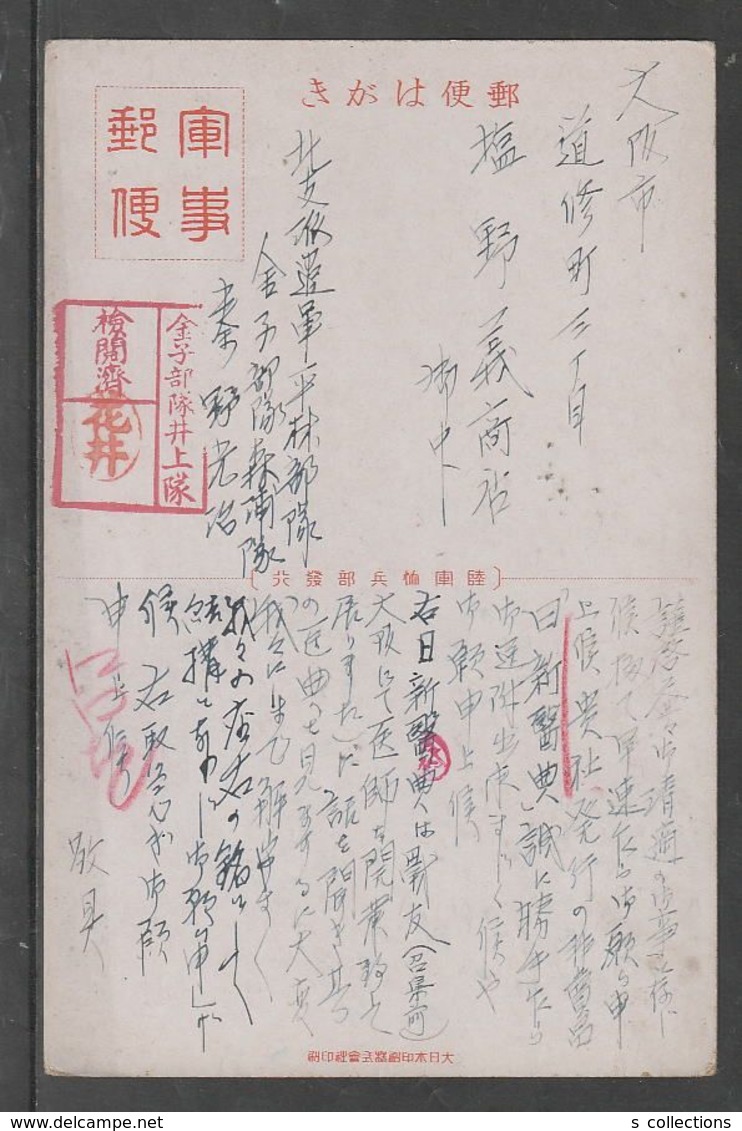 郵便はがき
軍事
郵便
大阪市
道修町三丁目
塩野義商店
御中
北支派遣軍平林部隊
金子部隊森浦隊
秦野光治
金子部隊井上隊
検閲済
花井
〔陸軍恤兵部發行〕
謹啓 御清適の御事と存じ
候 極て早速乍ら御願ひ申
上候 貴社発行の
「日新醫典」誠に勝手乍ら
御送附出来ますまじく候や
御願申上候
右日新醫典は戦友（召集前
大阪にて医師を開業致し
居りました）に話を聞き其
の医典の を見まするに大変
我々にまで解

結構と 御願ひ申し
候 右取急ぎ御願
申上候
敬具
大日本印刷株式會社印刷
s collections